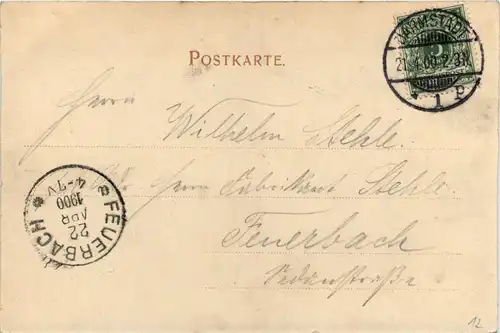 POSTKARTE.
DARMSTADT
2-3N
1 P
Herrn
Wilhelm Stehle.
Herrn Fabrikant Stehle.
Feuerbach
Sedanstraße
FEUERBACH
22
APR
1900
4-7N
12